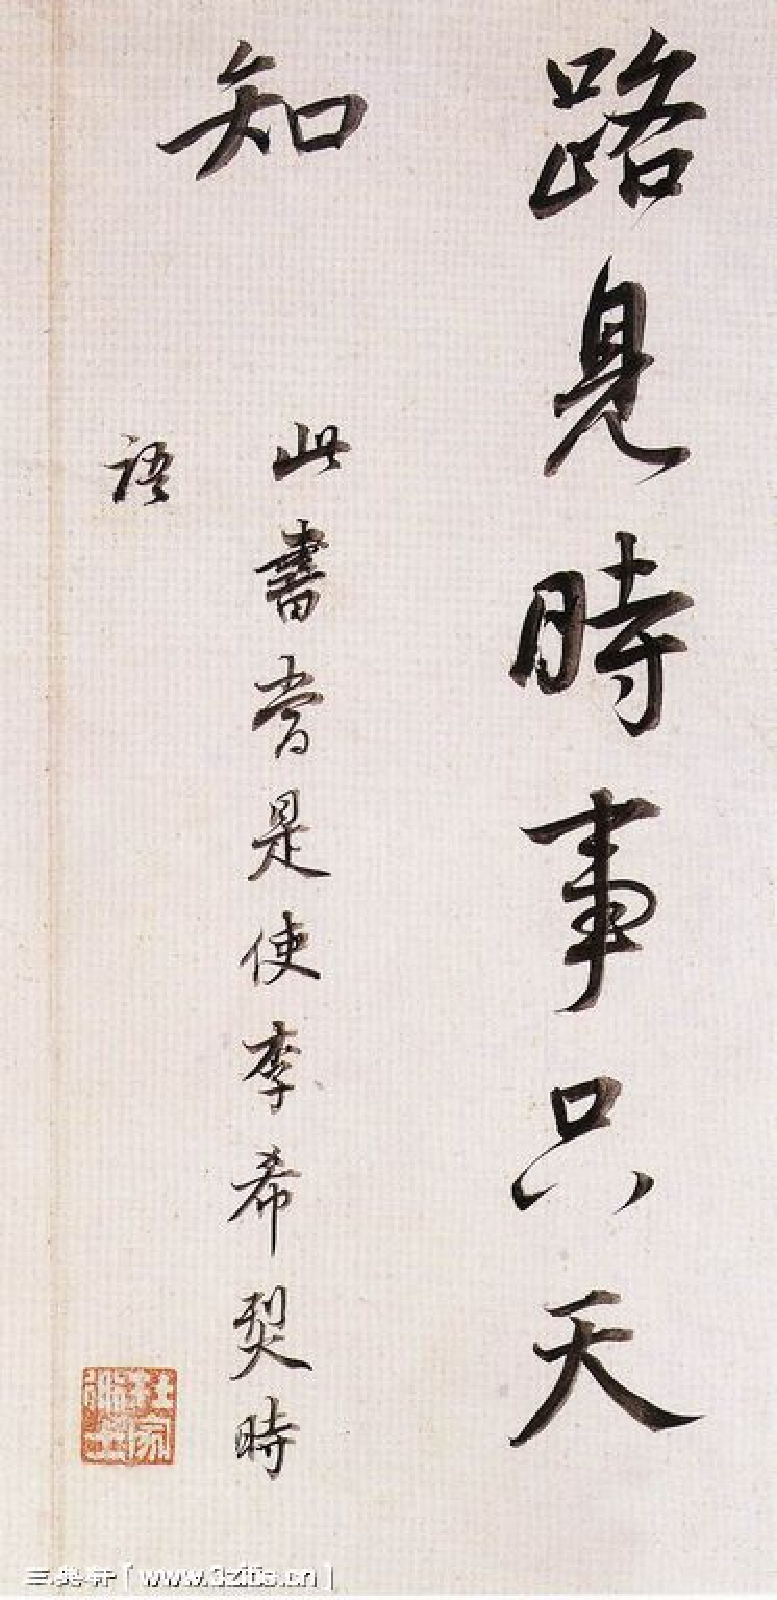 路見時事只天
知
此書當是使李希烈時
語
www.3zitie.cn